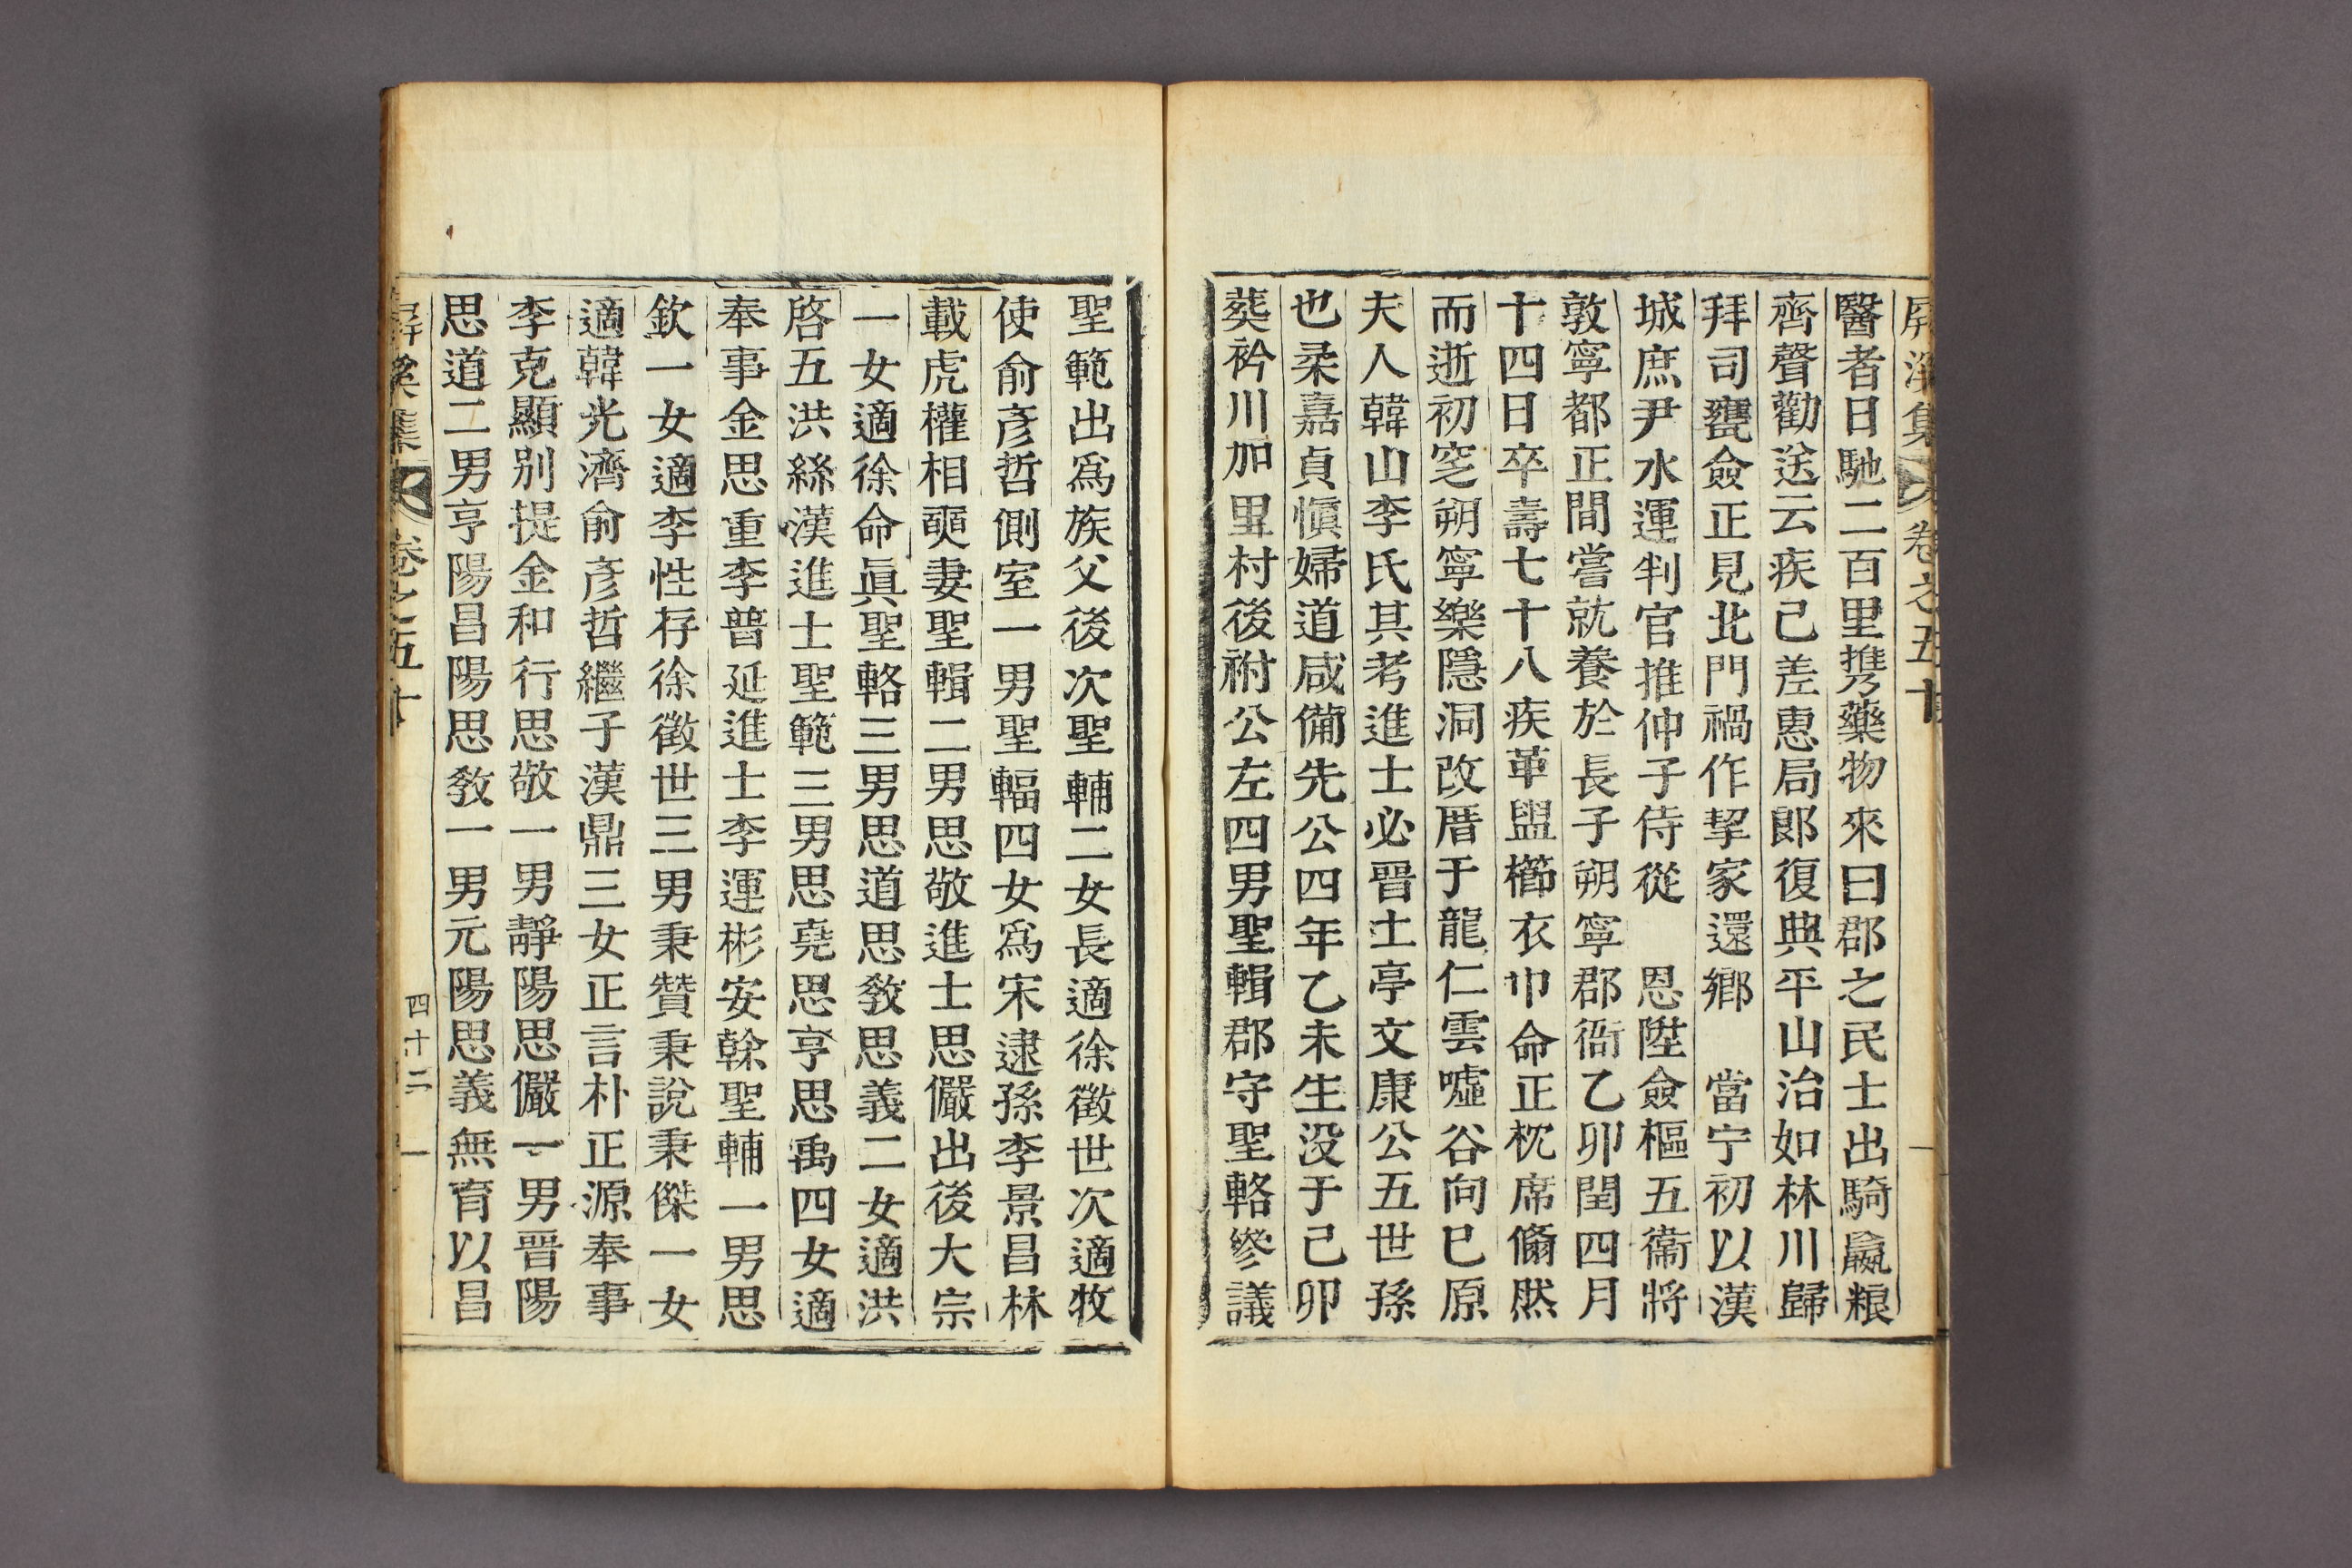 屛溪集 卷之五十
醫者日馳二百里携藥物來曰郡之民士出騎贏粮
齊聲勸送云疾已差惠局郎復典平山治如林川歸
拜司䆃僉正見北門禍作挈家還鄕 當宁初以漢
城庶尹水運判官推仲子侍從 恩陞僉樞五衞將
敦寧都正間嘗就養於長子朔寧郡衙乙卯閏四月
十四日卒壽七十八疾革盥櫛衣巾命正枕席翛然
而逝初窆朔寧樂隱洞改厝于龍仁雲噓谷向巳原
夫人韓山李氏其考進士必晋土亭文康公五世孫
也柔嘉貞愼婦道咸備先公四年乙未生没于己卯
葬衿川加里村後祔公左四男聖輯郡守聖輅叅議
聖範出爲族父後次聖輔二女長適徐徵世次適牧
使俞彦哲側室一男聖輻四女爲宋逮孫李景昌林
載虎權相奭妻聖輯二男思敬進士思儼出後大宗
一女適徐命眞聖輅三男思道思敎思義二女適洪
啓五洪綠漢進士聖範三男思堯思亨思禹四女適
奉事金思重李普延進士李運彬安榦聖輔一男思
欽一女適李性存徐徵世三男秉贊秉說秉傑一女
適韓光濟俞彦哲繼子漢鼎三女正言朴正源奉事
李克顯别提金和行思敬一男靜陽思儼一男晋陽
思道二男亨陽昌陽思敎一男元陽思義無育以昌
屛溪集 卷之五十 四十二